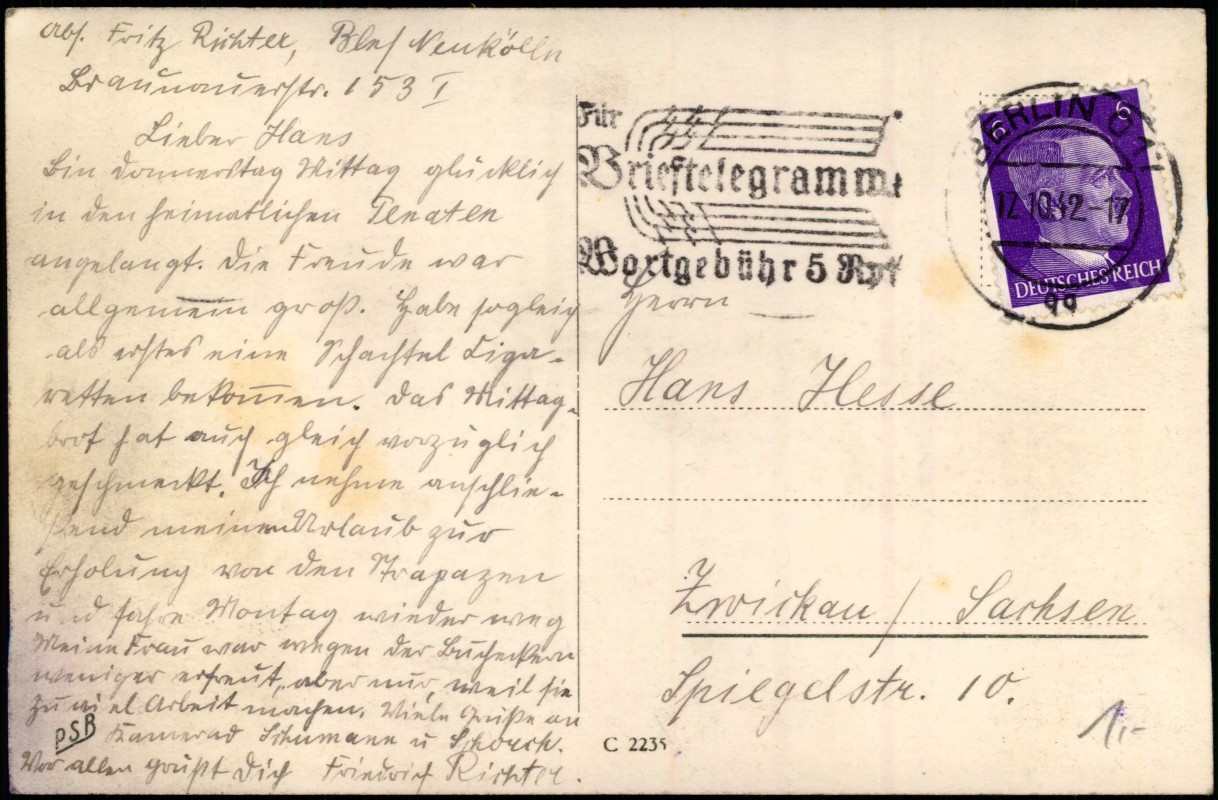 Abs. Fritz Richter, Bln Neukölln
Braunauerstr. 153 I
Lieber Hans
Bin Donnerstag Mittag glücklich
in den heimatlichen Penaten
angelangt. Die Freude war
allgemein groß. Habe sogleich
als erstes eine Schachtel Ziga-
retten bekommen. Das Mittag-
brot hat auch gleich vorzüglich
geschmeckt. Ich nehme anschlie-
ßend meinen Urlaub zur
Erholung von den Strapazen
und fahre Montag wieder weg
Meine Frau war wegen der Bucheckern
weniger erfreut, aber nur, weil sie
zu viel Arbeit machen. Viele Grüße an
Kamerad Schumann u
Vor allen grüßt Dich Friedrich Richter.
PSB
Für
Brieftelegramme
Wortgebühr 5 Rpf
BERLIN O 17
12.10.42-17
6 6
DEUTSCHES REICH
Herrn
Hans Hesse
Zwickau / Sachsen
Spiegelstr. 10.
C 2235
1,-